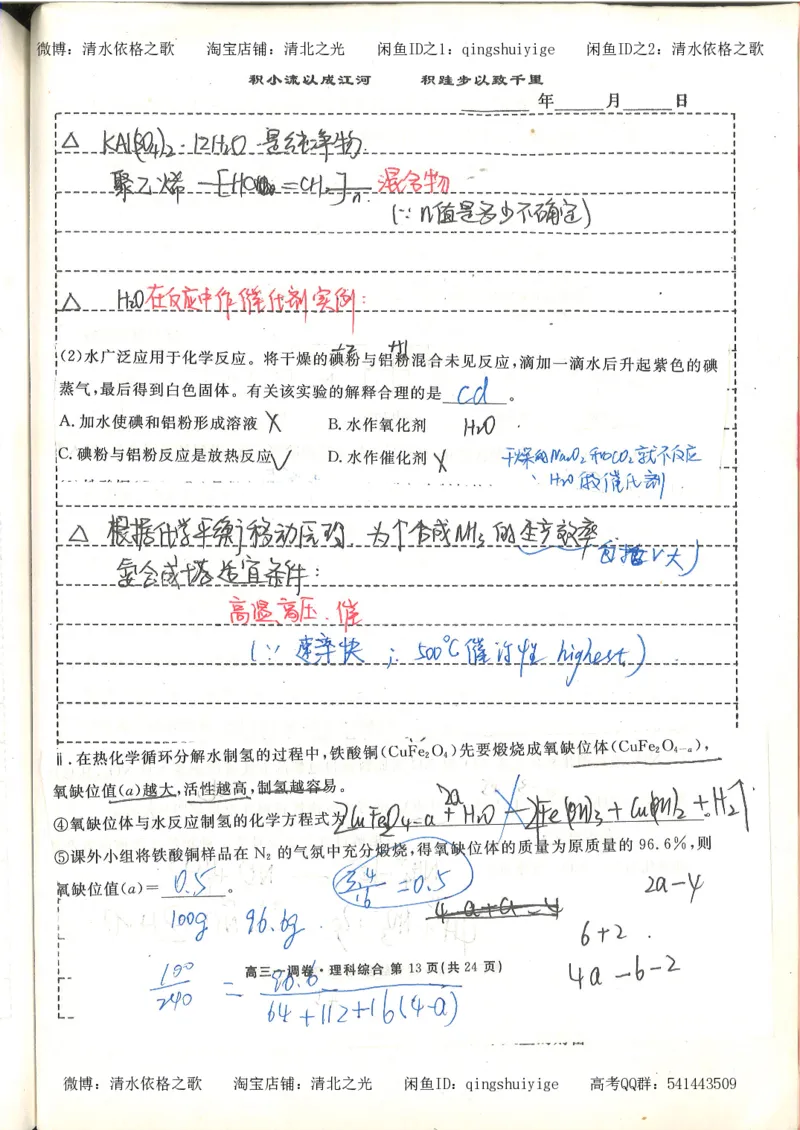 微博：清水依格之歌 淘宝店铺：清北之光 闲鱼ID之1：qingshuiyige 闲鱼ID之2：清水依格之歌
积小流以成江河 积跬步以致千里
年 月 日
△ KAl(SO4)2·12H2O 是纯净物.
聚乙烯 混合物
(∵ n值是多少不确定)
△ H2O在反应中作催化剂实例：
(2)水广泛应用于化学反应。将干燥的碘粉与铝粉混合未见反应,滴加一滴水后升起紫色的碘
蒸气,最后得到白色固体。有关该实验的解释合理的是 cd 。
A.加水使碘和铝粉形成溶液 X B.水作氧化剂 H2O
C.碘粉与铝粉反应是放热反应 √ D.水作催化剂 X 干燥的Na2O2和CO2就不反应
H2O做催化剂
△ 根据化学平衡移动原理，为个合成NH3的生产效率
(包括v大)
氨合成塔适宜条件：
高温高压.催
(∵ 速率快 ; 500℃催活性 highest)
ⅱ.在热化学循环分解水制氢的过程中,铁酸铜(CuFe2O4)先要煅烧成氧缺位体(CuFe2O4-a),
氧缺位值(a)越大,活性越高,制氢越容易。
④氧缺位体与水反应制氢的化学方程式为
⑤课外小组将铁酸铜样品在 N2 的气氛中充分煅烧,得氧缺位体的质量为原质量的 96.6%,则
氧缺位值(a)= 0.5 。 3.4/16 =0.5 2a-4
100g 96.6g 4-a+a-4
6+2
高三一调卷·理科综合 第 13 页(共 24 页) 4a-6-2
190/240 = 96.6/(64+112+16(4-a))
微博：清水依格之歌 淘宝店铺：清北之光 闲鱼ID：qingshuiyige 高考QQ群：541443509